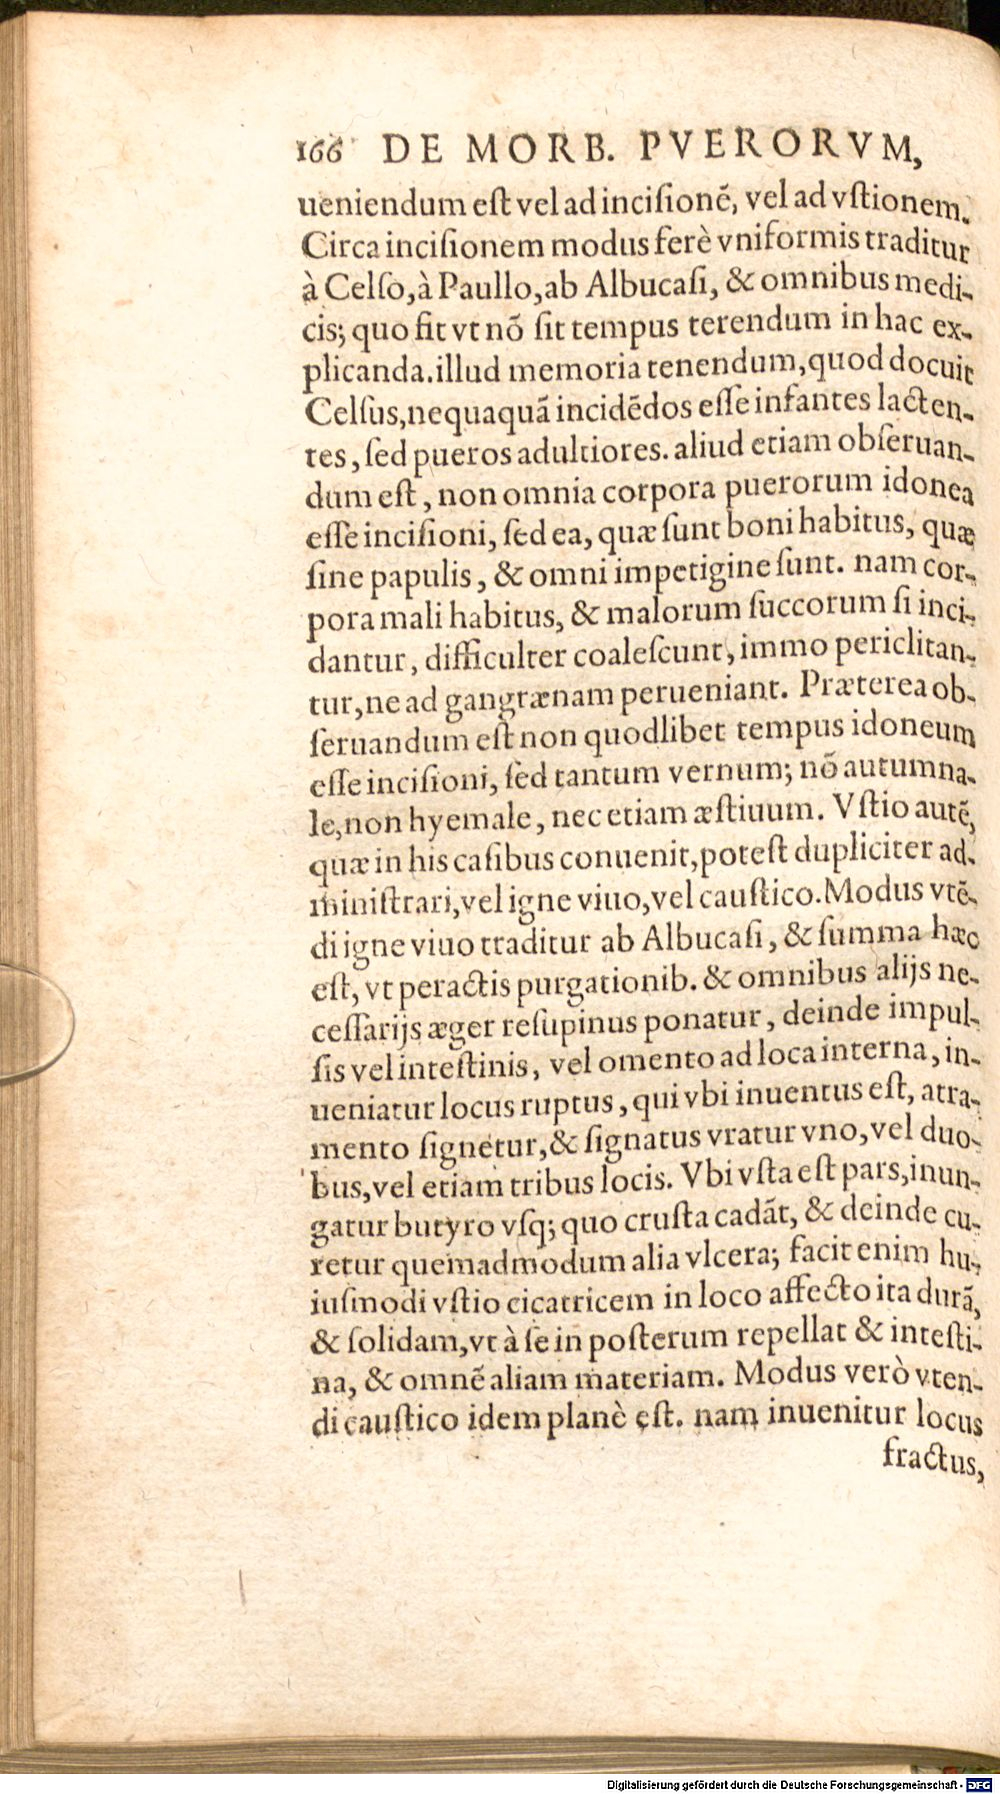 166 DE MORB. PVERORVM,
ueniendum eſt vel ad inciſionē, vel ad vſtionem.
Circa inciſionem modus ferè vniformis traditur
à Celſo, à Paullo, ab Albucaſi, & omnibus medi-
cis; quo fit vt nō ſit tempus terendum in hac ex-
plicanda. illud memoria tenendum, quod docuit
Celſus, nequaquā incidēdos eſſe infantes lacten-
tes, ſed pueros adultiores. aliud etiam obſeruan-
dum eſt, non omnia corpora puerorum idonea
eſſe inciſioni, ſed ea, quæ ſunt boni habitus, quæ
ſine papulis, & omni impetigine ſunt. nam cor-
pora mali habitus, & malorum ſuccorum ſi inci-
dantur, difficulter coaleſcunt, immo periclitan-
tur, ne ad gangrænam perueniant. Præterea ob-
ſeruandum eſt non quodlibet tempus idoneum
eſſe inciſioni, ſed tantum vernum; nō autumna-
le, non hyemale, nec etiam æſtiuum. Vſtio autē,
quæ in his caſibus conuenit, poteſt dupliciter ad-
miniſtrari, vel igne viuo, vel cauſtico. Modus vtē-
di igne viuo traditur ab Albucaſi, & ſumma hæc
eſt, vt peractis purgationib. & omnibus alijs ne-
ceſſarijs æger reſupinus ponatur, deinde impul-
ſis vel inteſtinis, vel omento ad loca interna, in-
ueniatur locus ruptus, qui vbi inuentus eſt, atra-
mento ſignetur, & ſignatus vratur vno, vel duo-
bus, vel etiam tribus locis. Vbi vſta eſt pars, inun-
gatur butyro vſq; quo cruſta cadāt, & deinde cu-
retur quemadmodum alia vlcera; facit enim hu-
iuſmodi vſtio cicatricem in loco affecto ita durā,
& ſolidam, vt à ſe in poſterum repellat & inteſti-
na, & omnē aliam materiam. Modus verò vten-
di cauſtico idem planè eſt. nam inuenitur locus
fractus,
Digitalisierung gefördert durch die Deutsche Forschungsgemeinschaft - DFG